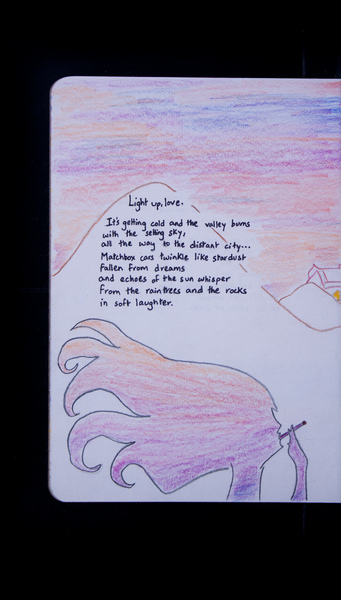 Light up, love.
It's getting cold and the valley burns
with the setting sky,
all the way to the distant city...
Matchbox cars twinkle like stardust
fallen from dreams
and echoes of the sun whisper
from the raintrees and the rocks
in soft laughter.